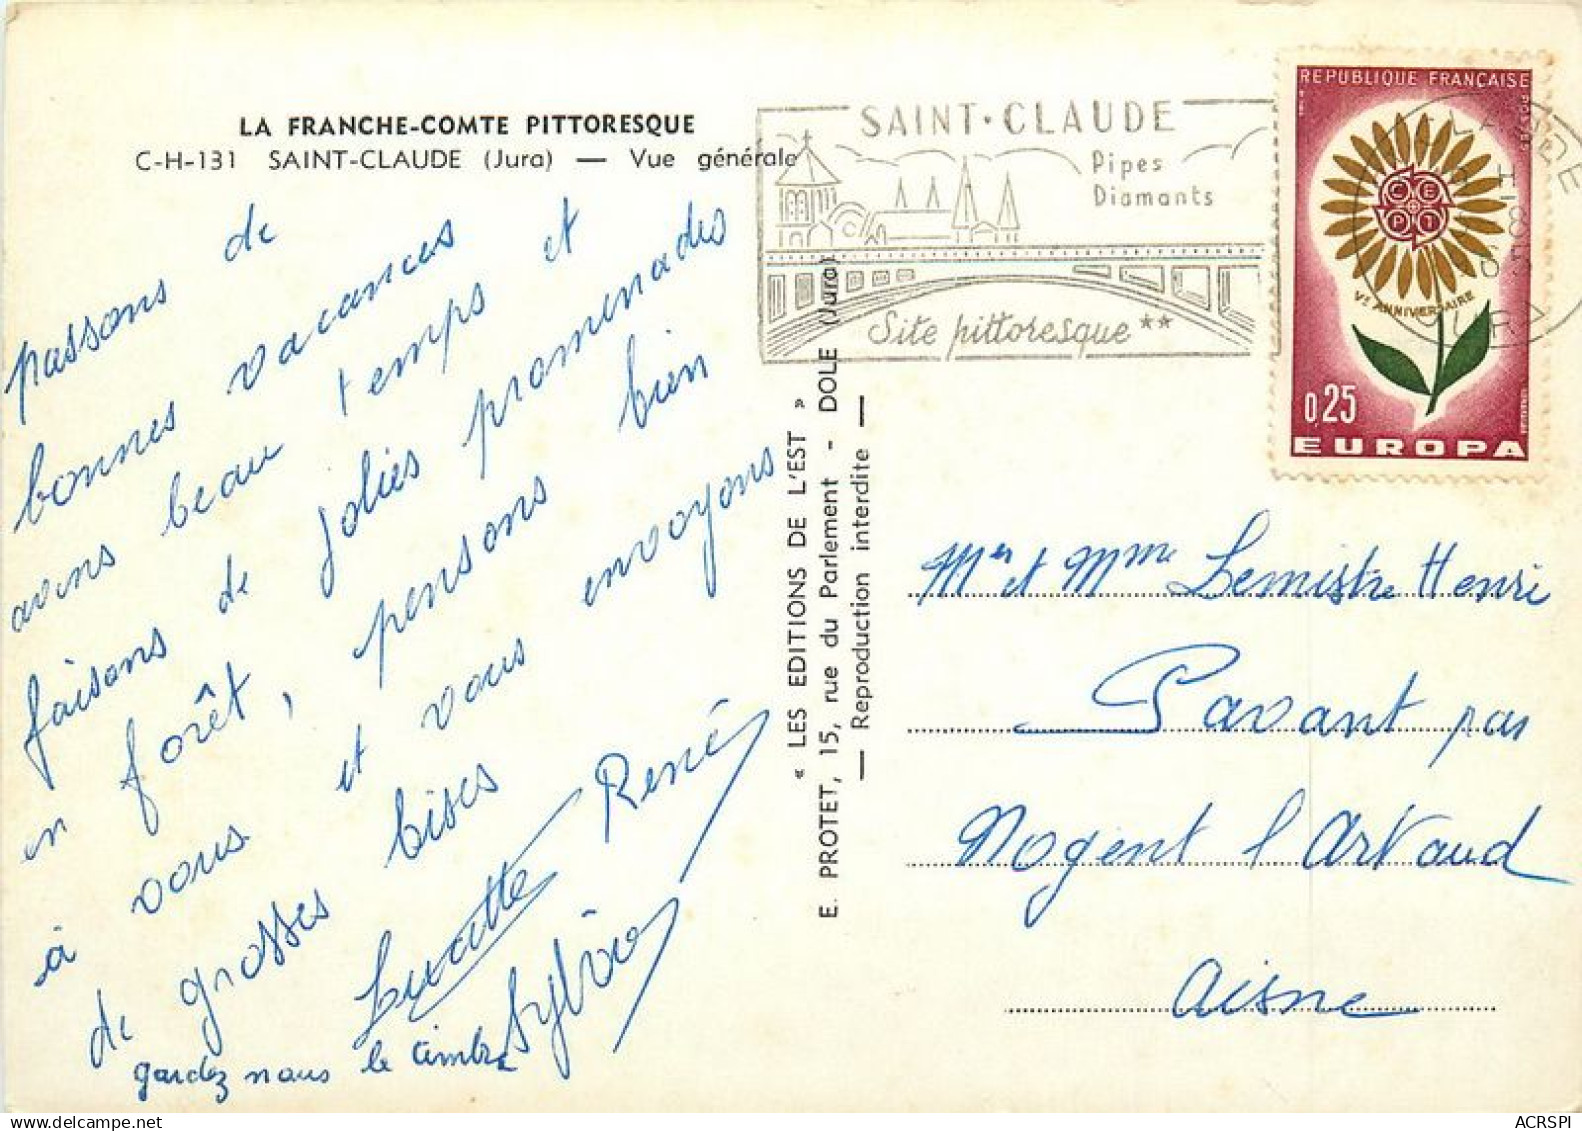 LA FRANCHE-COMTE PITTORESQUE
C-H-131 SAINT-CLAUDE (Jura) — Vue générale
passons de
bonnes vacances
avons beau temps et
faisons de jolies promenades
en forêt, pensons bien
à vous et vous envoyons
de grosses bises
Lucette René
Sylvie
gardez nous le timbre
« LES EDITIONS DE L'EST »
E. PROTET, 15, rue du Parlement - DOLE (Jura)
— Reproduction interdite —
SAINT-CLAUDE
Pipes
Diamants
Site pittoresque**
REPUBLIQUE FRANÇAISE
POSTES
1964
C E P T
Ve ANNIVERSAIRE
0,25
EUROPA
JURA
Mr et Mme Lemistre Henri
Pavant par
Nogent l'Artaud
Aisne
ACRSPI